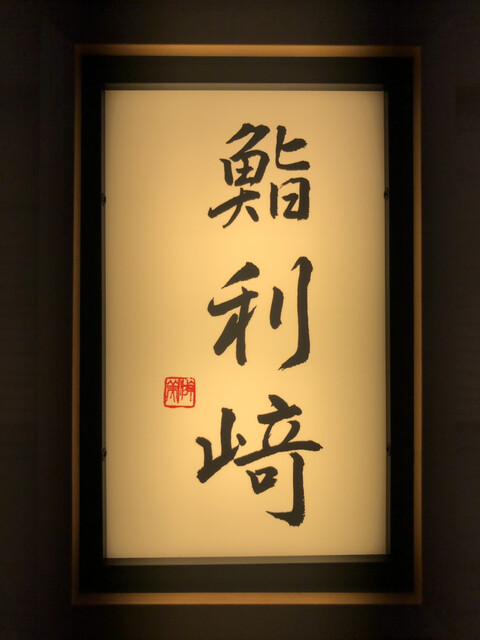 鮨利崎